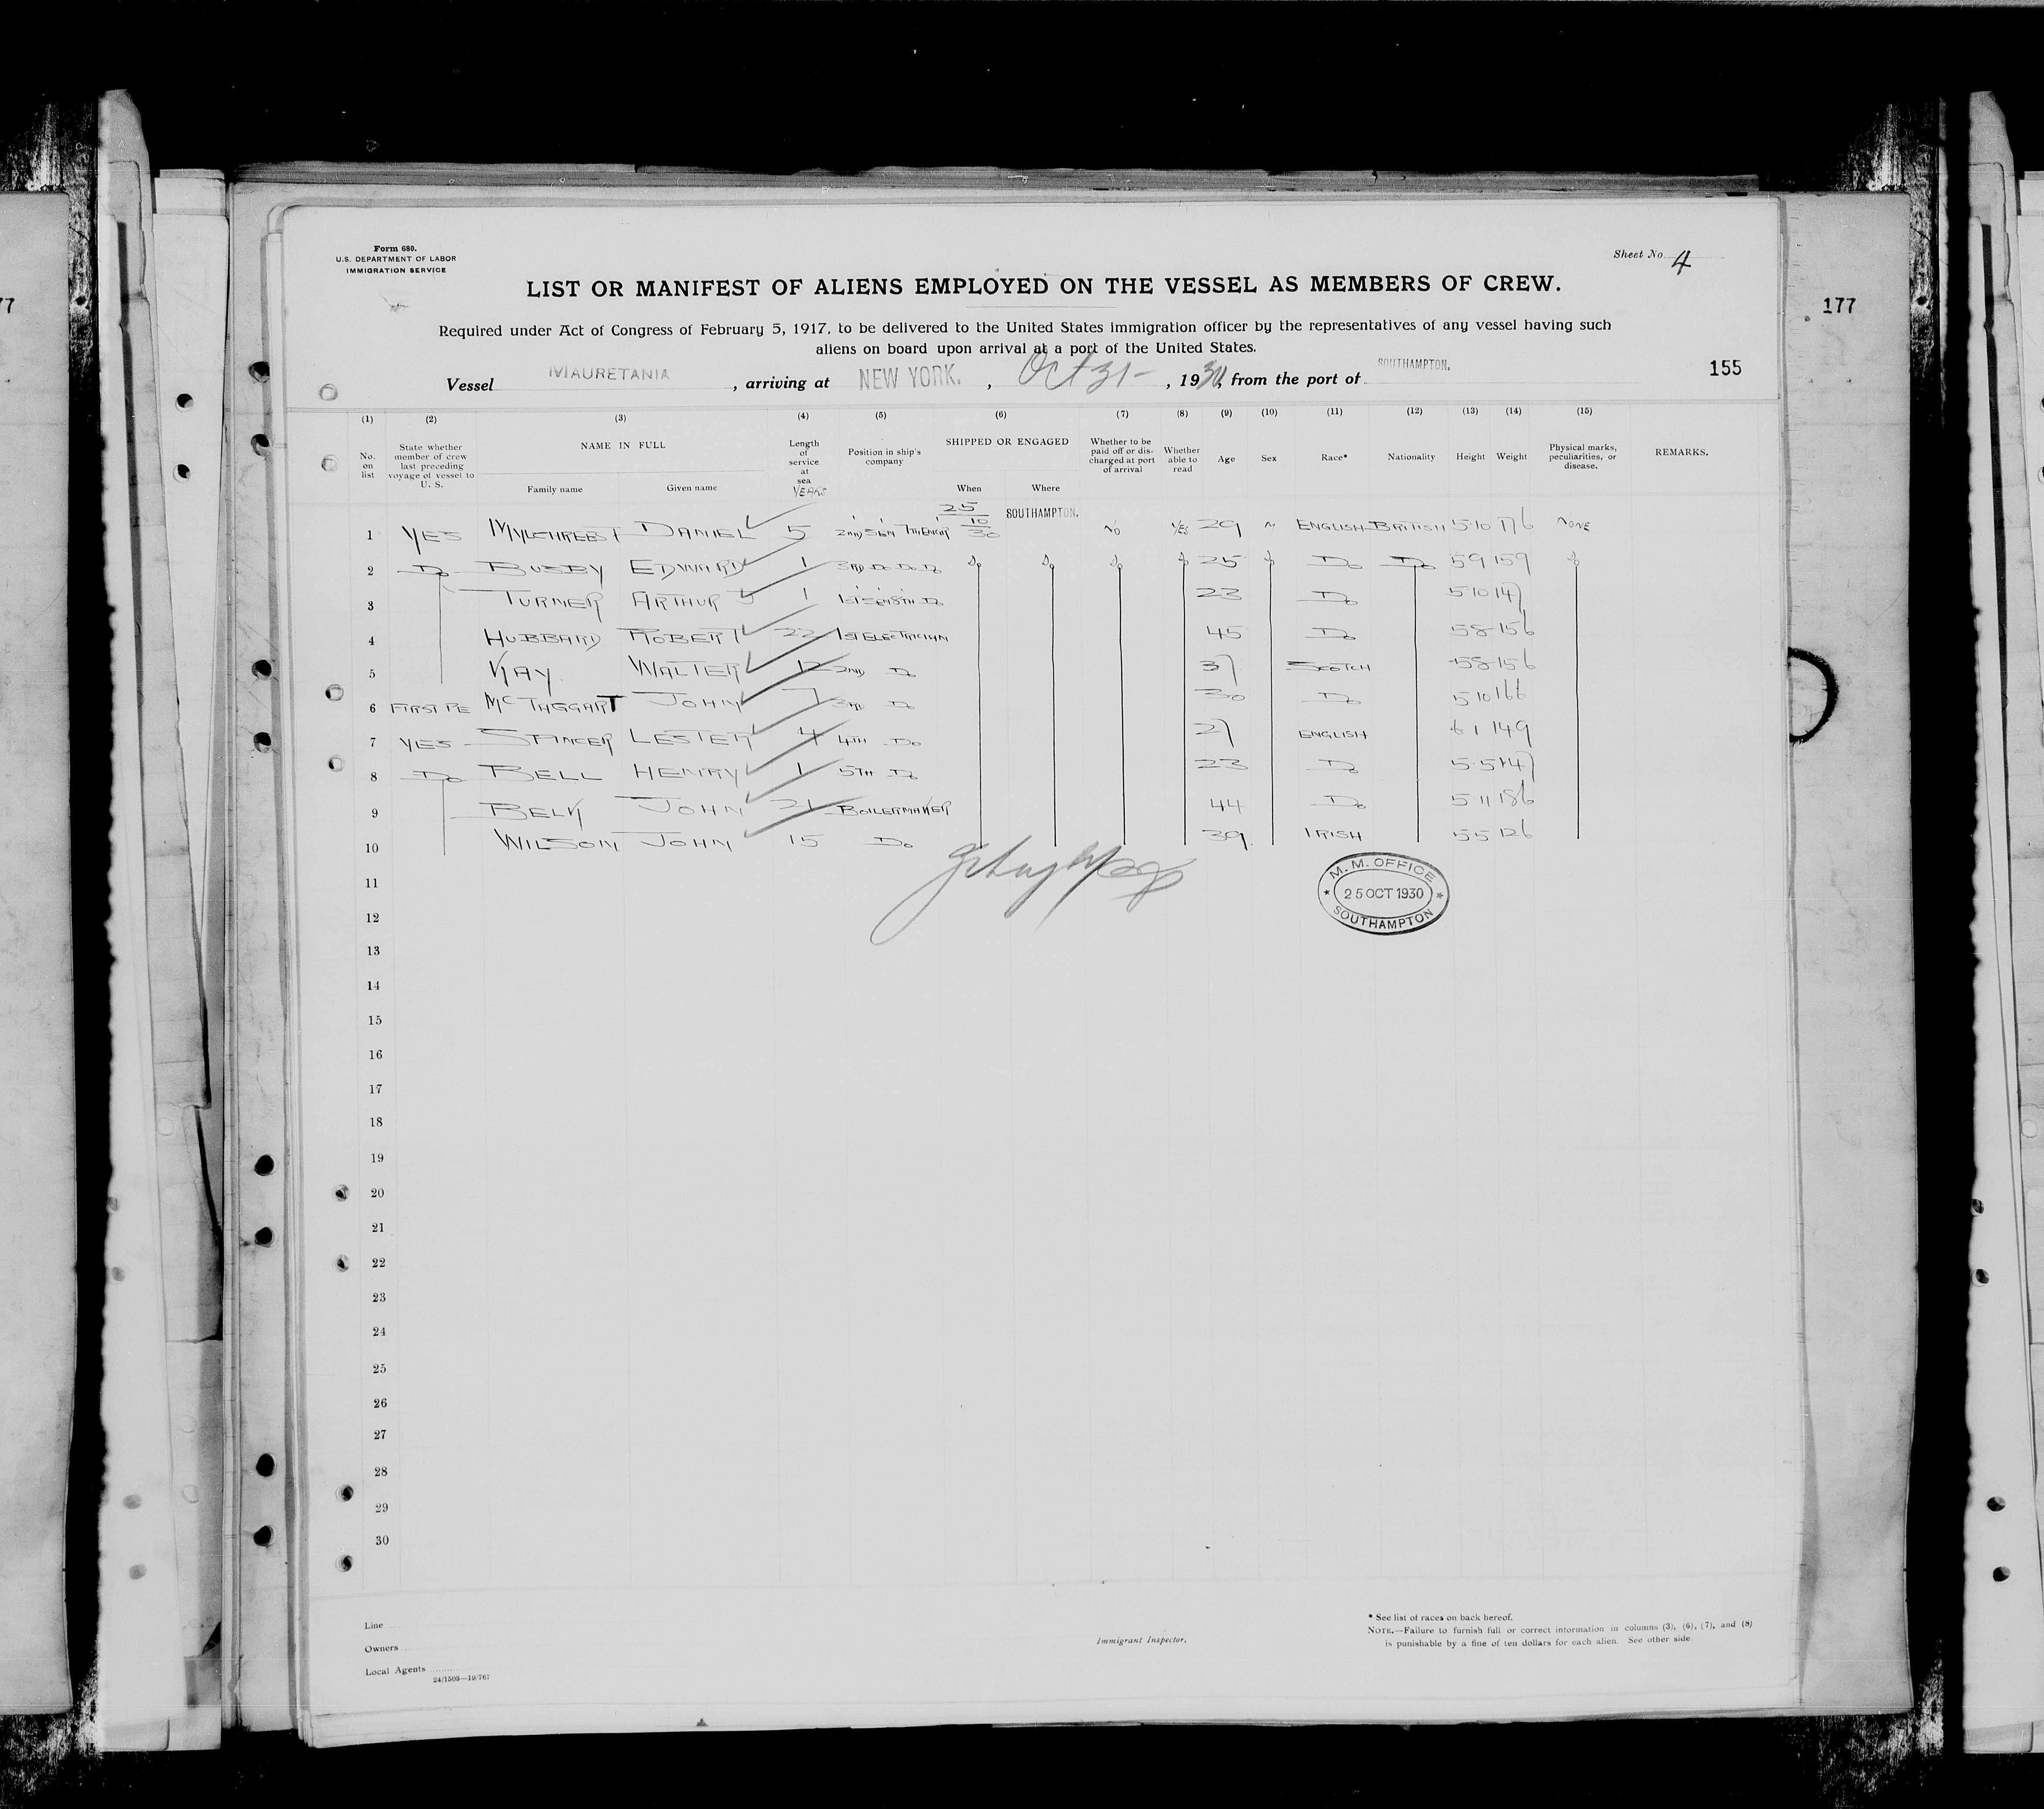 Form 680.
U.S. DEPARTMENT OF LABOR
IMMIGRATION SERVICE
Sheet No. 4
LIST OR MANIFEST OF ALIENS EMPLOYED ON THE VESSEL AS MEMBERS OF CREW.
Required under Act of Congress of February 5, 1917, to be delivered to the United States immigration officer by the representatives of any vessel having such
aliens on board upon arrival at a port of the United States.
77
177
155
Vessel MAURETANIA, arriving at NEW YORK., Oct 31-, 1930, from the port of SOUTHAMPTON.
(1) (2) (3) (4) (5) (6) (7) (8) (9) (10) (11) (12) (13) (14) (15)
No. on list
State whether member of crew last preceding voyage of vessel to U. S.
NAME IN FULL
Family name Given name
Length of service at sea YEARS
Position in ship's company
SHIPPED OR ENGAGED
When Where
Whether to be paid off or discharged at port of arrival
Whether able to read
Age
Sex
Race*
Nationality
Height
Weight
Physical marks, peculiarities, or disease.
REMARKS.
1 YES MYLCHREEST DANIEL 5 2ND SEN 7TH ENGR 25 10 30 SOUTHAMPTON. NO YES 29 M ENGLISH BRITISH 5 10 176 NONE
2 Do BUSBY EDWARD 1 3RD Do Do Do Do Do Do Do 25 Do Do Do 5 9 159 Do
3 TURNER ARTHUR J 1 1ST SEN 8TH Do 23 Do 5 10 147
4 HUBBARD ROBERT 22 1ST ELECTRICIAN 45 Do 5 8 156
5 KAY WALTER 12 2ND Do 37 SCOTCH 5 8 156
6 FIRST PE McTAGGART JOHN 7 3RD Do 30 Do 5 10 166
7 YES SPINCER LESTER 4 4TH Do 27 ENGLISH 6 1 149
8 Do BELL HENRY 1 5TH Do 23 Do 5 5 147
9 BELK JOHN 21 BOILERMAKER 44 Do 5 11 186
10 WILSON JOHN 15 Do 39 IRISH 5 5 126
M. M. OFFICE
25 OCT 1930
SOUTHAMPTON
11
12
13
14
15
16
17
18
19
20
21
22
23
24
25
26
27
28
29
30
Line
Owners
Local Agents
24/1503—19/767
Immigrant Inspector.
* See list of races on back hereof.
NOTE.—Failure to furnish full or correct information in columns (3), (6), (7), and (8)
is punishable by a fine of ten dollars for each alien. See other side.